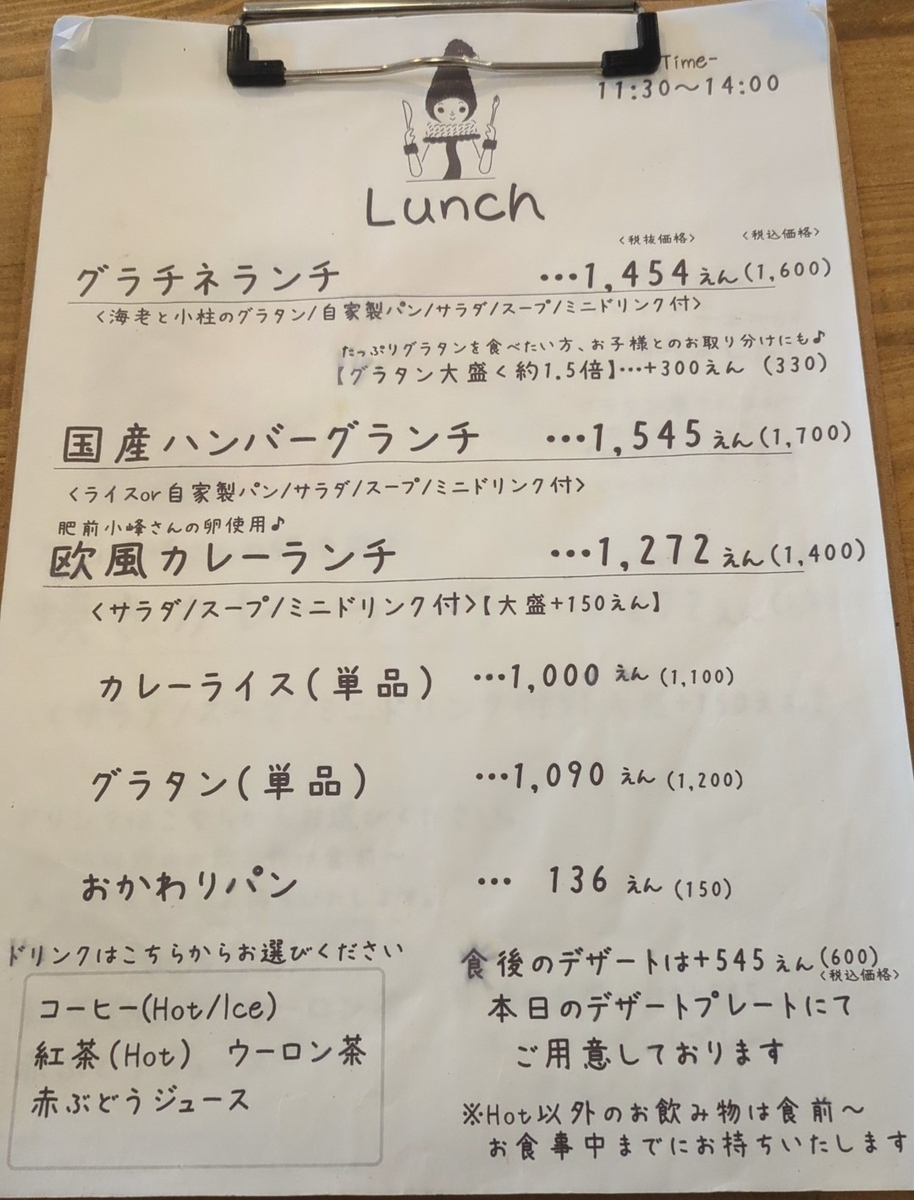 Time-
11:30～14:00
Lunch
〈税抜価格〉 〈税込価格〉
グラチネランチ …1,454えん(1,600)
〈海老と小柱のグラタン/自家製パン/サラダ/スープ/ミニドリンク付〉
たっぷりグラタンを食べたい方、お子様とのお取り分けにも♪
【グラタン大盛く約1.5倍】…+300えん (330)
国産ハンバーグランチ …1,545えん(1,700)
〈ライスor自家製パン/サラダ/スープ/ミニドリンク付〉
肥前小峰さんの卵使用♪
欧風カレーランチ …1,272えん(1,400)
〈サラダ/スープ/ミニドリンク付〉【大盛+150えん】
カレーライス(単品) …1,000えん(1,100)
グラタン(単品) …1,090えん(1,200)
おかわりパン … 136えん(150)
ドリンクはこちらからお選びください
コーヒー(Hot/Ice)
紅茶(Hot) ウーロン茶
赤ぶどうジュース
食後のデザートは+545えん(600)
〈税込価格〉
本日のデザートプレートにて
ご用意しております
※Hot以外のお飲み物は食前～
お食事中までにお持ちいたします